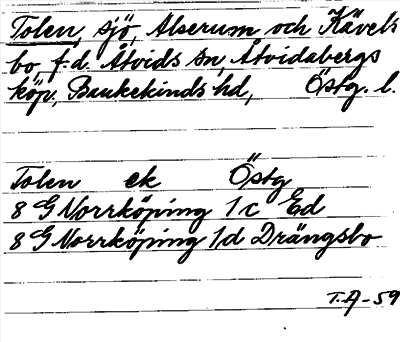 Tolen, sjö, Alserum och Kävels
bo f.d. Åtvids sn, Åtvidabergs
köp., Bankekinds hd, Östg. l.
Tolen ek Östg
8 G Norrköping 1c Ed
8 G Norrköping 1d Drängsbo
T.A-59